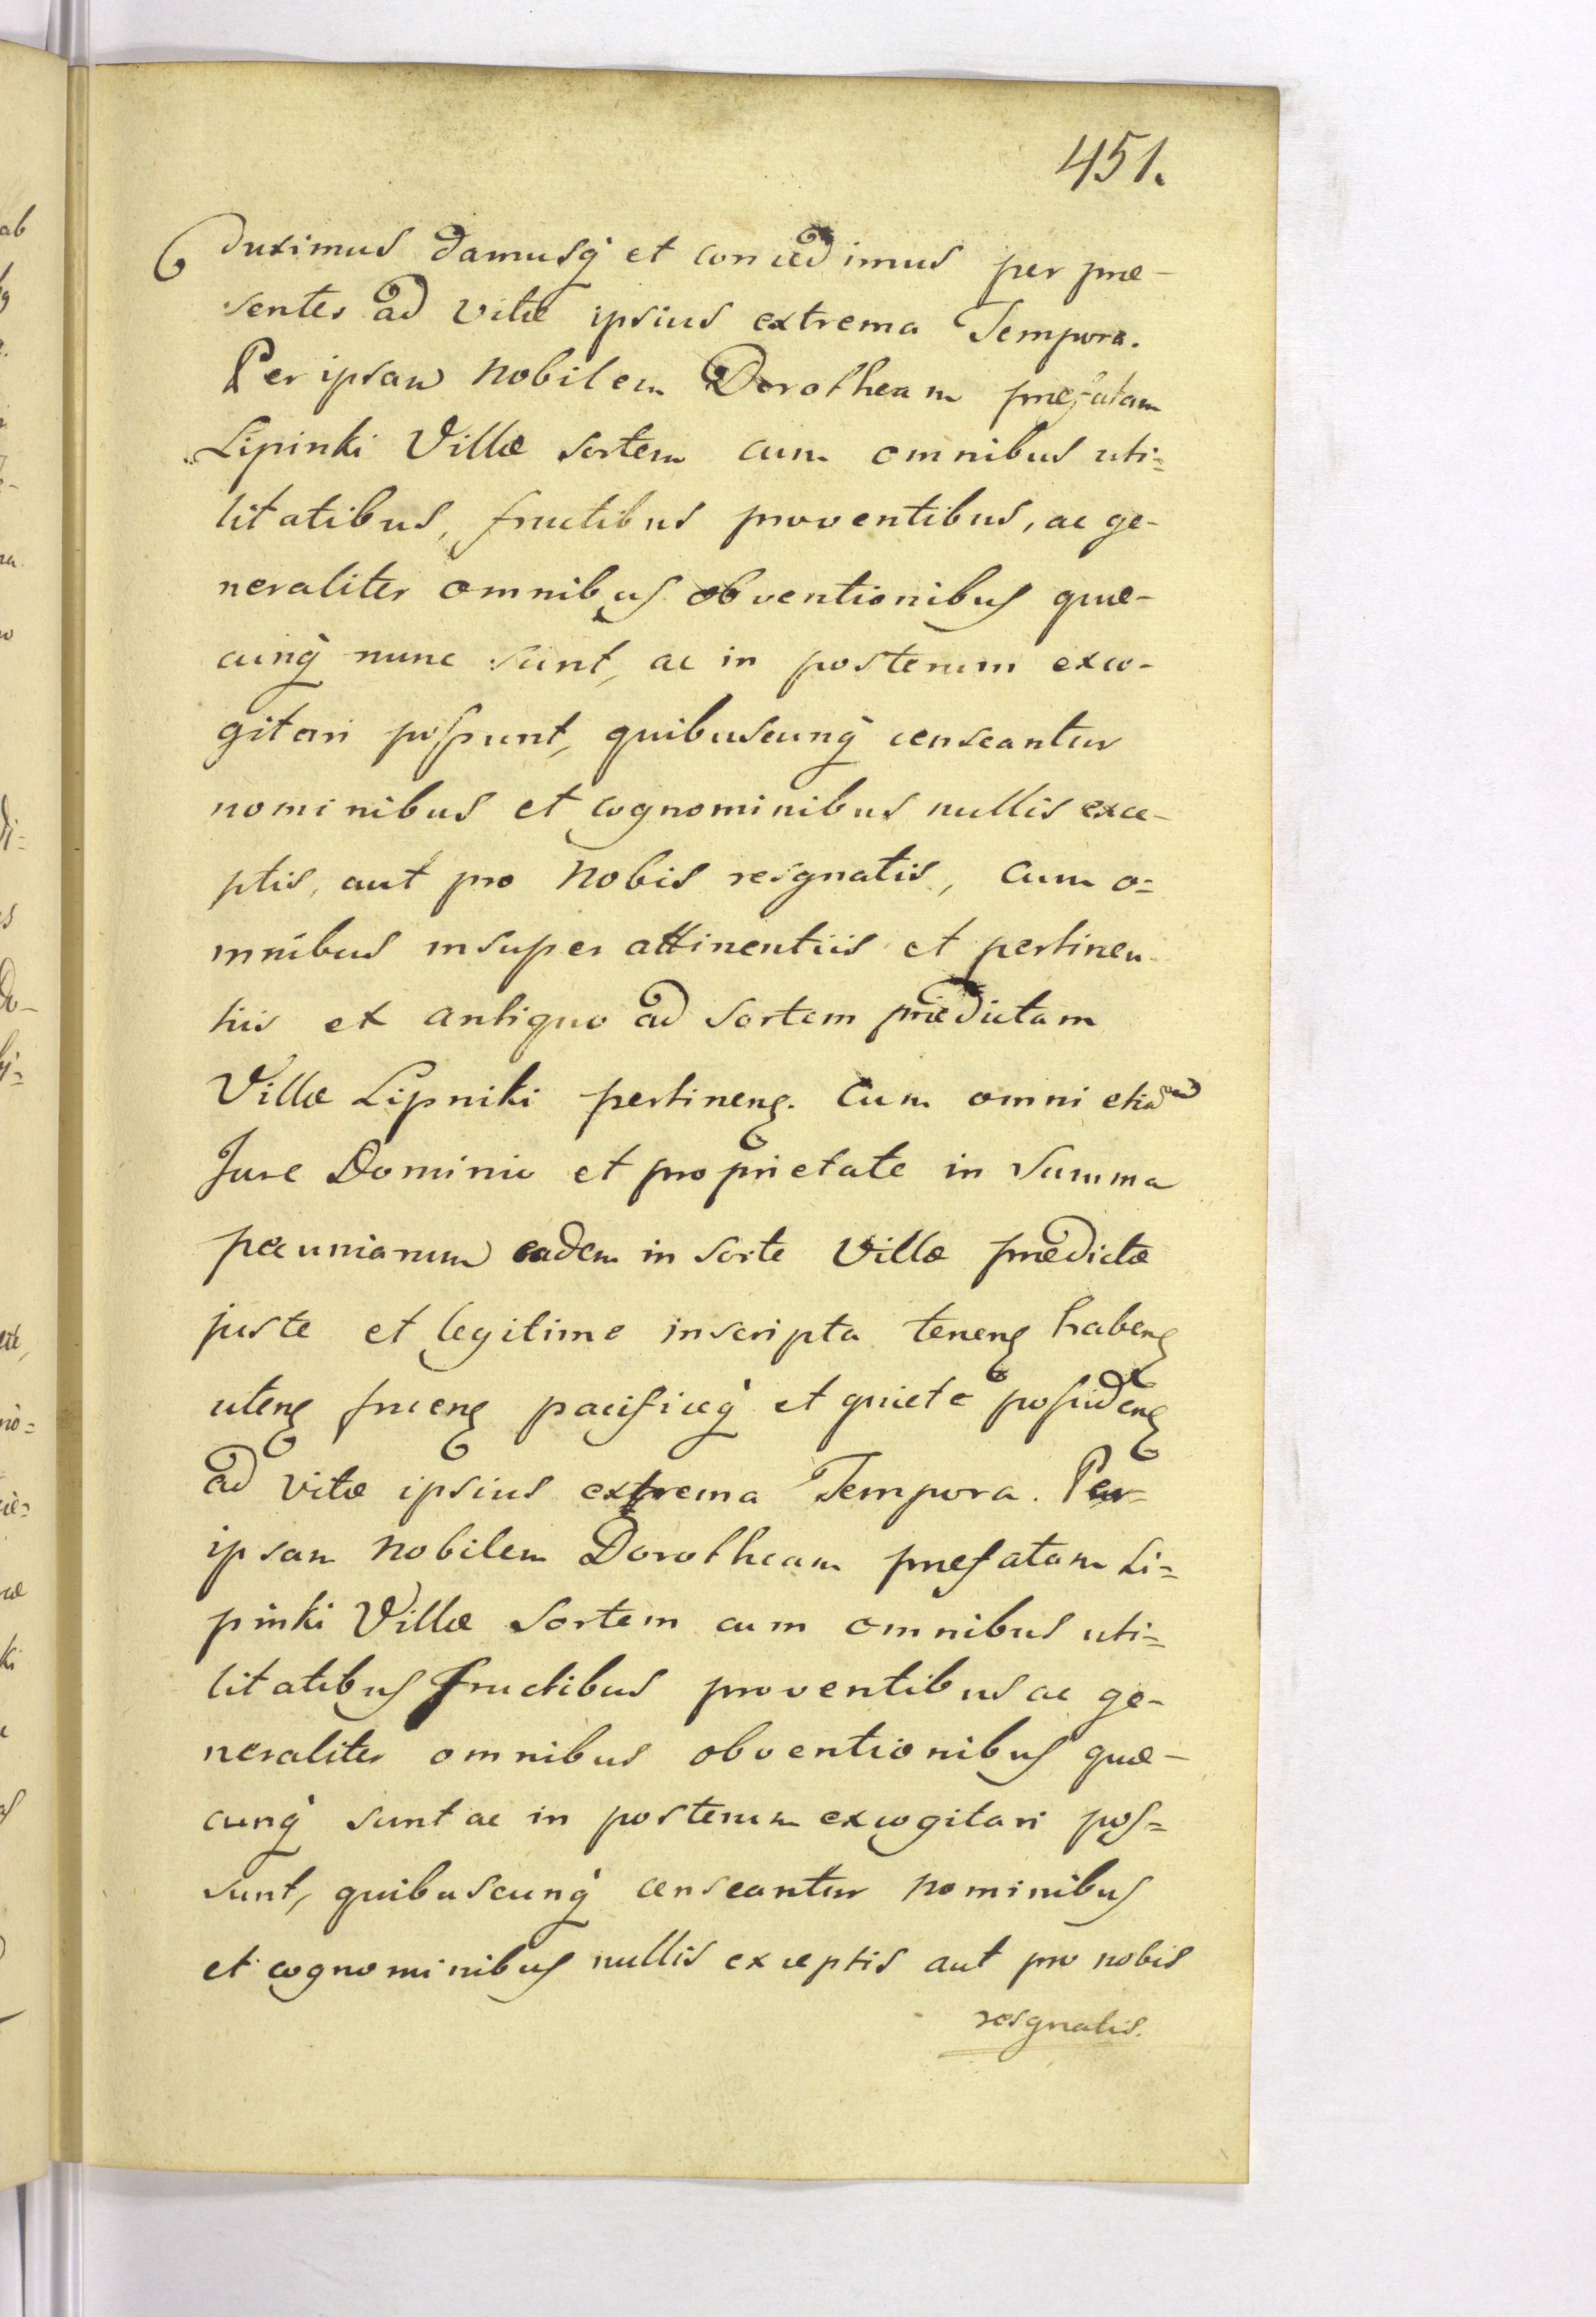 451.
duximus damusq́ et concedimus per præ-
sentes ad vitæ ipsius extrema Tempora.
Per ipsam Nobilem Dorotheam præfatam
Lipinki Villæ sortem cum omnibus uti=
litatibus, fructibus proventibus, ac ge-
neraliter omnibus obventionibus quæ-
cunq́ nunc sunt, ac in posterum exco-
gitari possunt, quibuscunq́ censeantur
nominibus et cognominibus nullis exce-
ptis, aut pro Nobis resgnatis, cum o=
mnibus insuper attinentiis et pertinen-
tiis ex antiquo ad sortem prædictam
Villæ Lipniki pertineng. Cum omni etiam
Jure Dominio et proprietate in Summa
pecuniarum eadem in sorte Villæ prædictæ
juste et legitime inscripta teneng habeng
uteng frueng pacificeq́ et quiete possideng
ad vitæ ipsius extrema Tempora. Per
ipsam Nobilem Dorotheam præfatam Li=
pinki Villæ Sortem cum omnibus uti=
litatibus fructibus proventibus ac ge-
neraliter omnibus obventionibus quæ-
cunq́ sunt ac in posterum excogitari pos=
sunt, quibuscunq́ censeantur nominibus
et cognominibus nullis exceptis aut pro nobis
resgnatis.